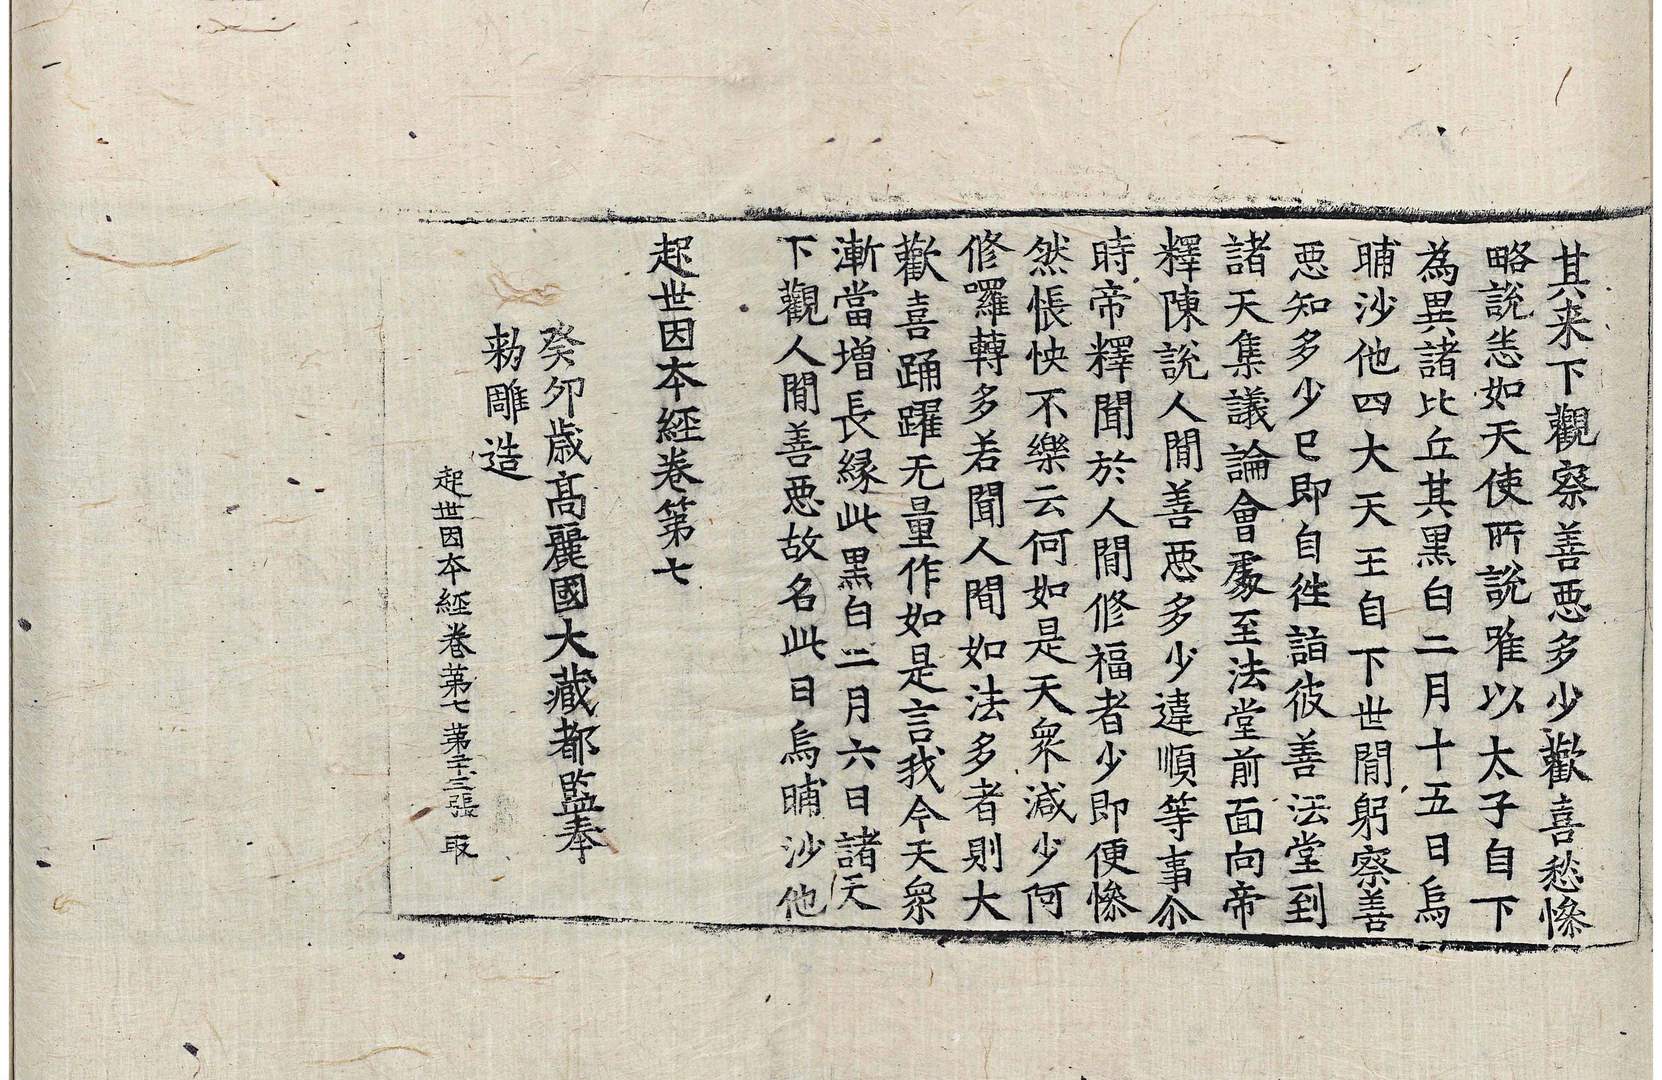 其来下觀察善惡多少歡喜愁慘
略說悉如天使所說唯以太子自下
為異諸比丘其黑白二月十五日烏
晡沙他四大天王自下世閒躬察善
惡知多少已即自徃詣彼善法堂到
諸天集議論會處至法堂前面向帝
釋陳說人閒善惡多少違順等事尒
時帝釋聞於人閒修福者少即便慘
然悵怏不樂云何如是天衆減少阿
修囉轉多若聞人閒如法多者則大
歡喜踊躍无量作如是言我今天衆
漸當增長縁此黑白二月六日諸天
下觀人閒善惡故名此日烏晡沙他
起世因本經卷第七
癸夘歳髙麗國大藏都監奉
勑雕造
起世因本經卷第七 第二十三張 取